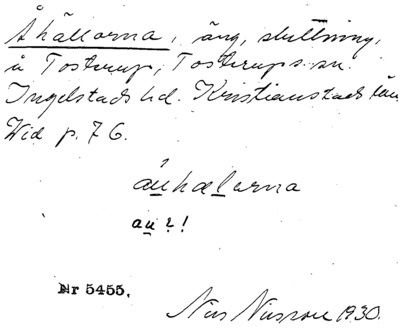 Åhällorna, äng, sluttning,
å Tosterup, Tosterups sn.
Ingelstads hd. Kristianstads län
Wid p. 76.
au̲hæl̲arna
au̲?!
Nr 5455.
Nils Nilsson 1930.